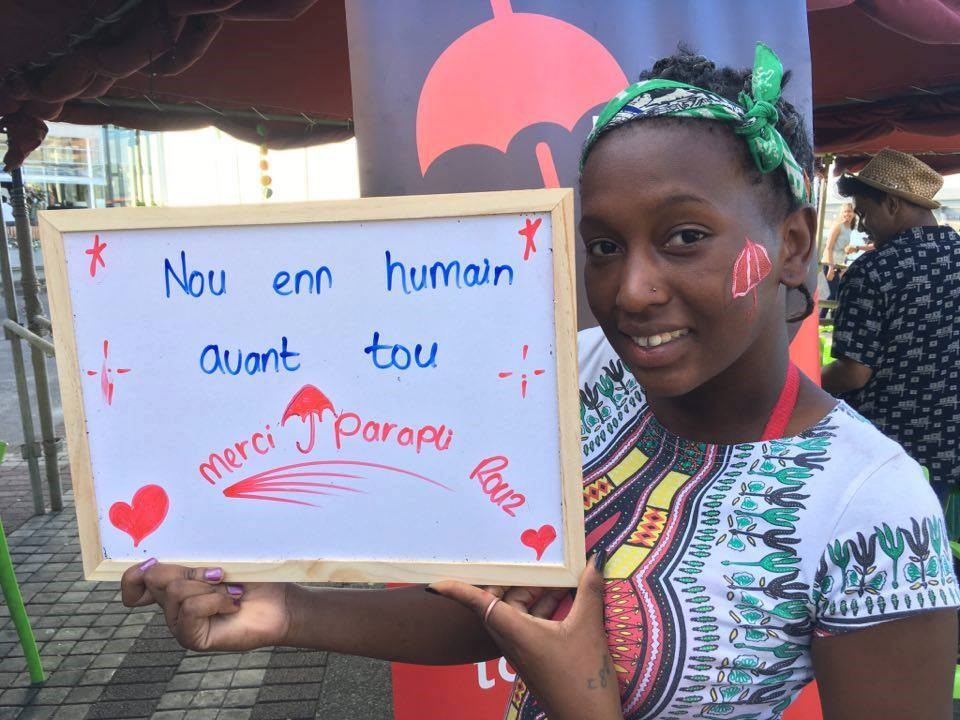 Nou enn humain
avant tou
Merci Parapli
Rouz